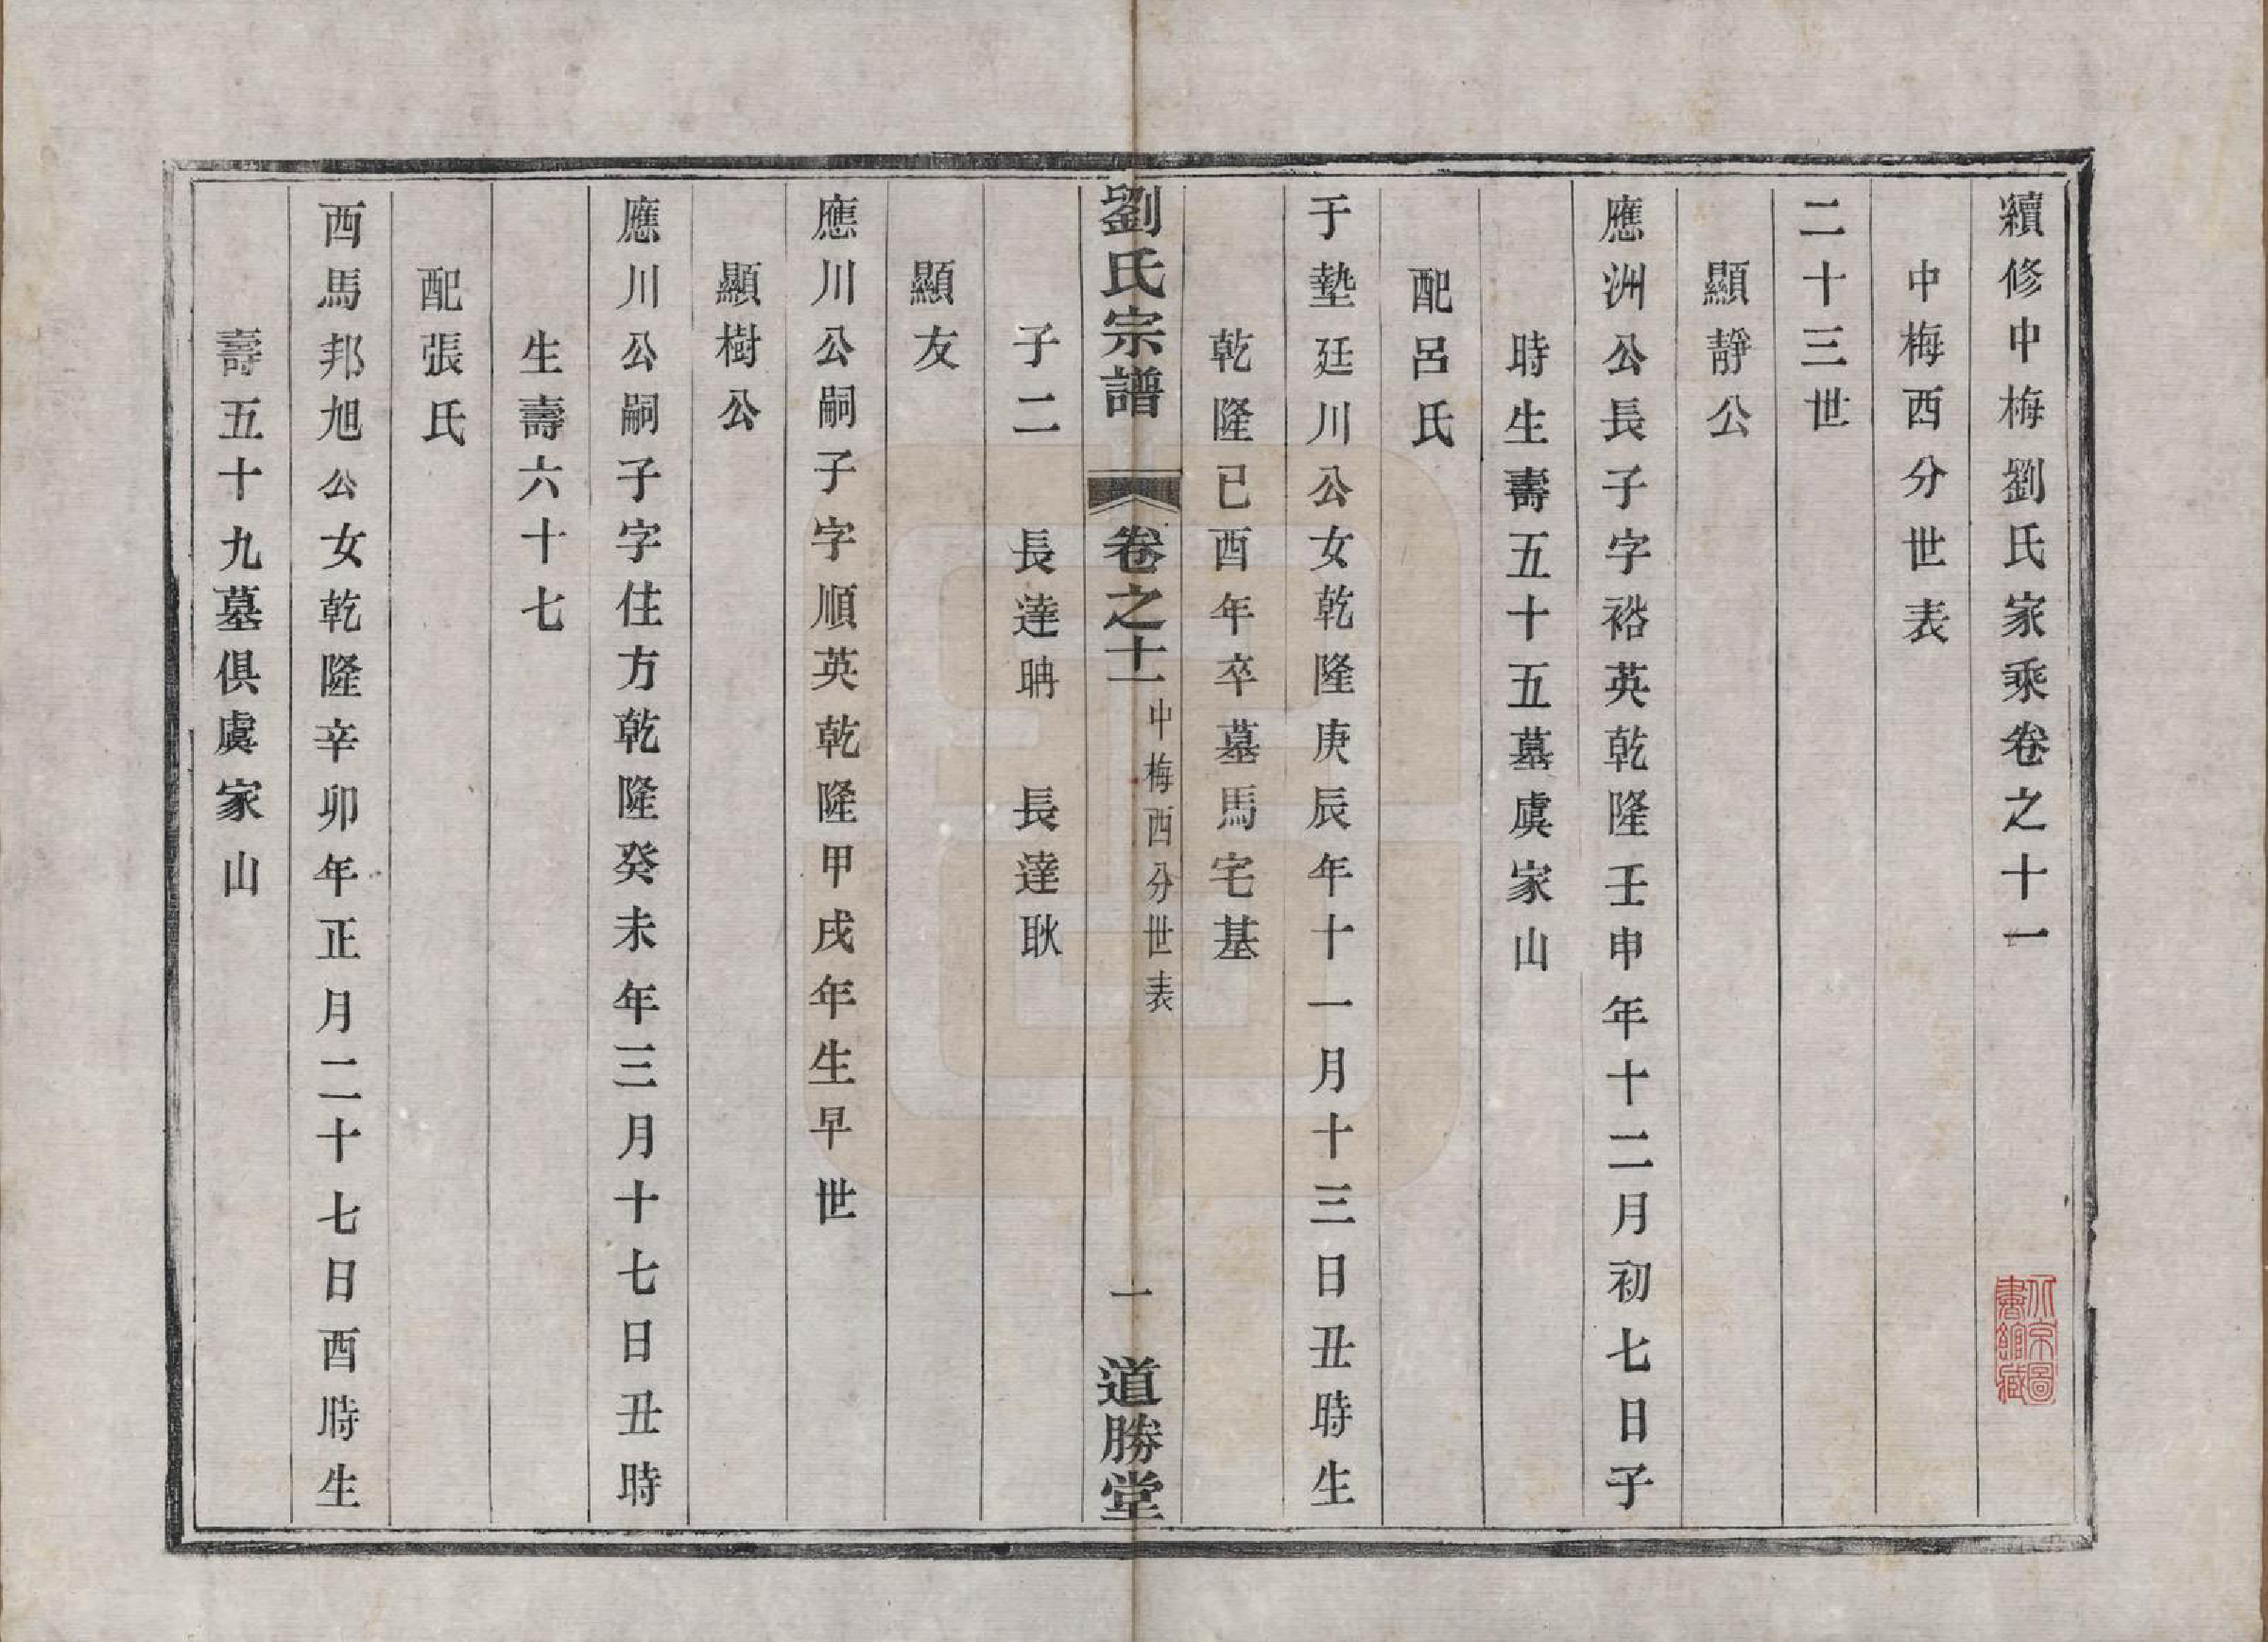 續修中梅劉氏家乘卷之十一
中梅西分世表
二十三世
顯靜公
應洲公長子字裕英乾隆壬申年十二月初七日子
時生壽五十五墓虞家山
配呂氏
于墊廷川公女乾隆庚辰年十一月十三日丑時生
乾隆已酉年卒墓馬宅基
子二　長達聃　長達耿
劉氏宗譜　卷之十一　中梅西分世表　一　道勝堂
顯友
應川公嗣子字順英乾隆甲戌年生早世
顯樹公
應川公嗣子字住方乾隆癸未年三月十七日丑時
生壽六十七
配張氏
西馬邦旭公女乾隆辛卯年正月二十七日酉時生
壽五十九墓俱虞家山
北京圖
書館藏